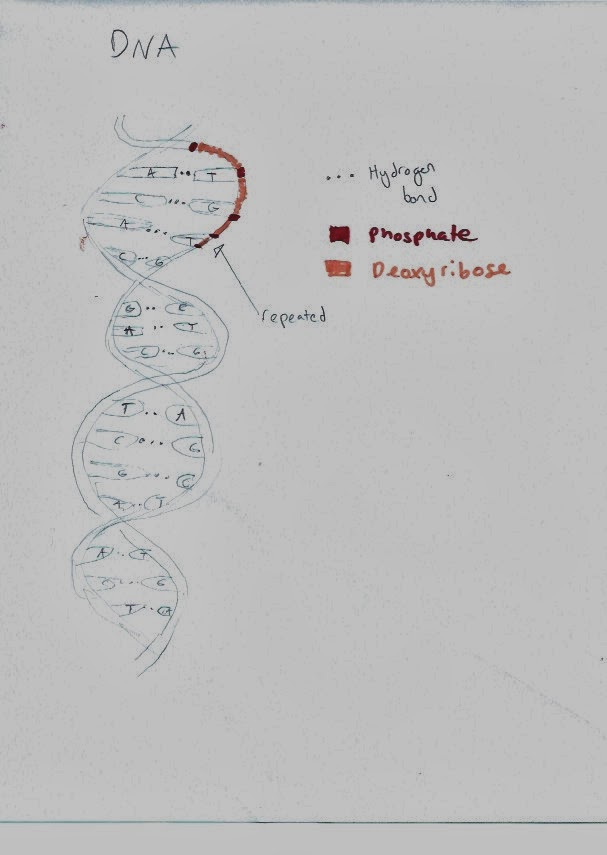 DNA
A T
C G
A T
C G
G C
A T
C G
T A
C G
G C
A T
A T
G
T A
... Hydrogen
bond
Phosphate
Deoxyribose
repeated